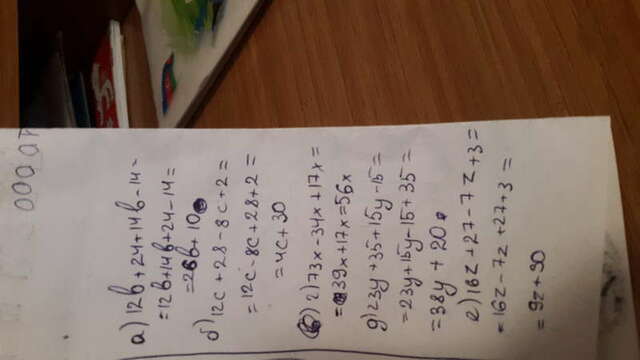 а) 12b+24+14b-14=
=12b+14b+24-14=
=26b+10
б) 12c+28-8c+2=
=12c-8c+28+2=
=4c+30
г) 73x-34x+17x=
=39x+17x=56x
д) 23y+35+15y-15=
=23y+15y-15+35=
=38y+20
е) 16z+27-7z+3=
=16z-7z+27+3=
=9z+30
10 000